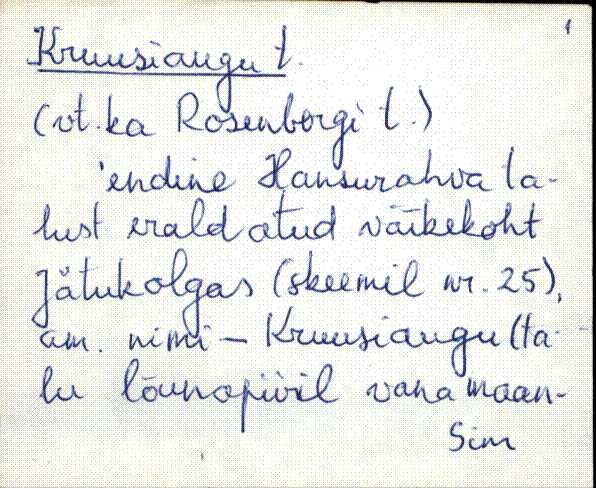 1
Kruusiaugu t.
(vt. ka Rosenbergi t.)
'endine Hansurahva ta-
lust eraldatud väikekoht
Jätukolgas (skeemil nr. 25),
am. nimi - Kruusiaugu (ta-
lu lõunapiiril vana maan-
Sim